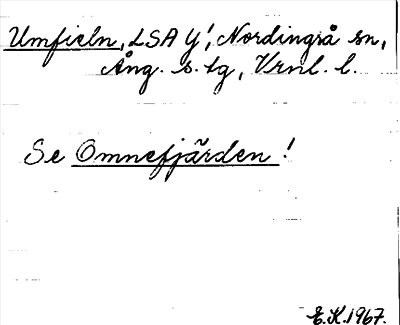 Umfieln, LSA Y!, Nordingrå sn,
Ång. s. tg, Vrnl. l.
Se Omnefjärden!
E.K. 1967.